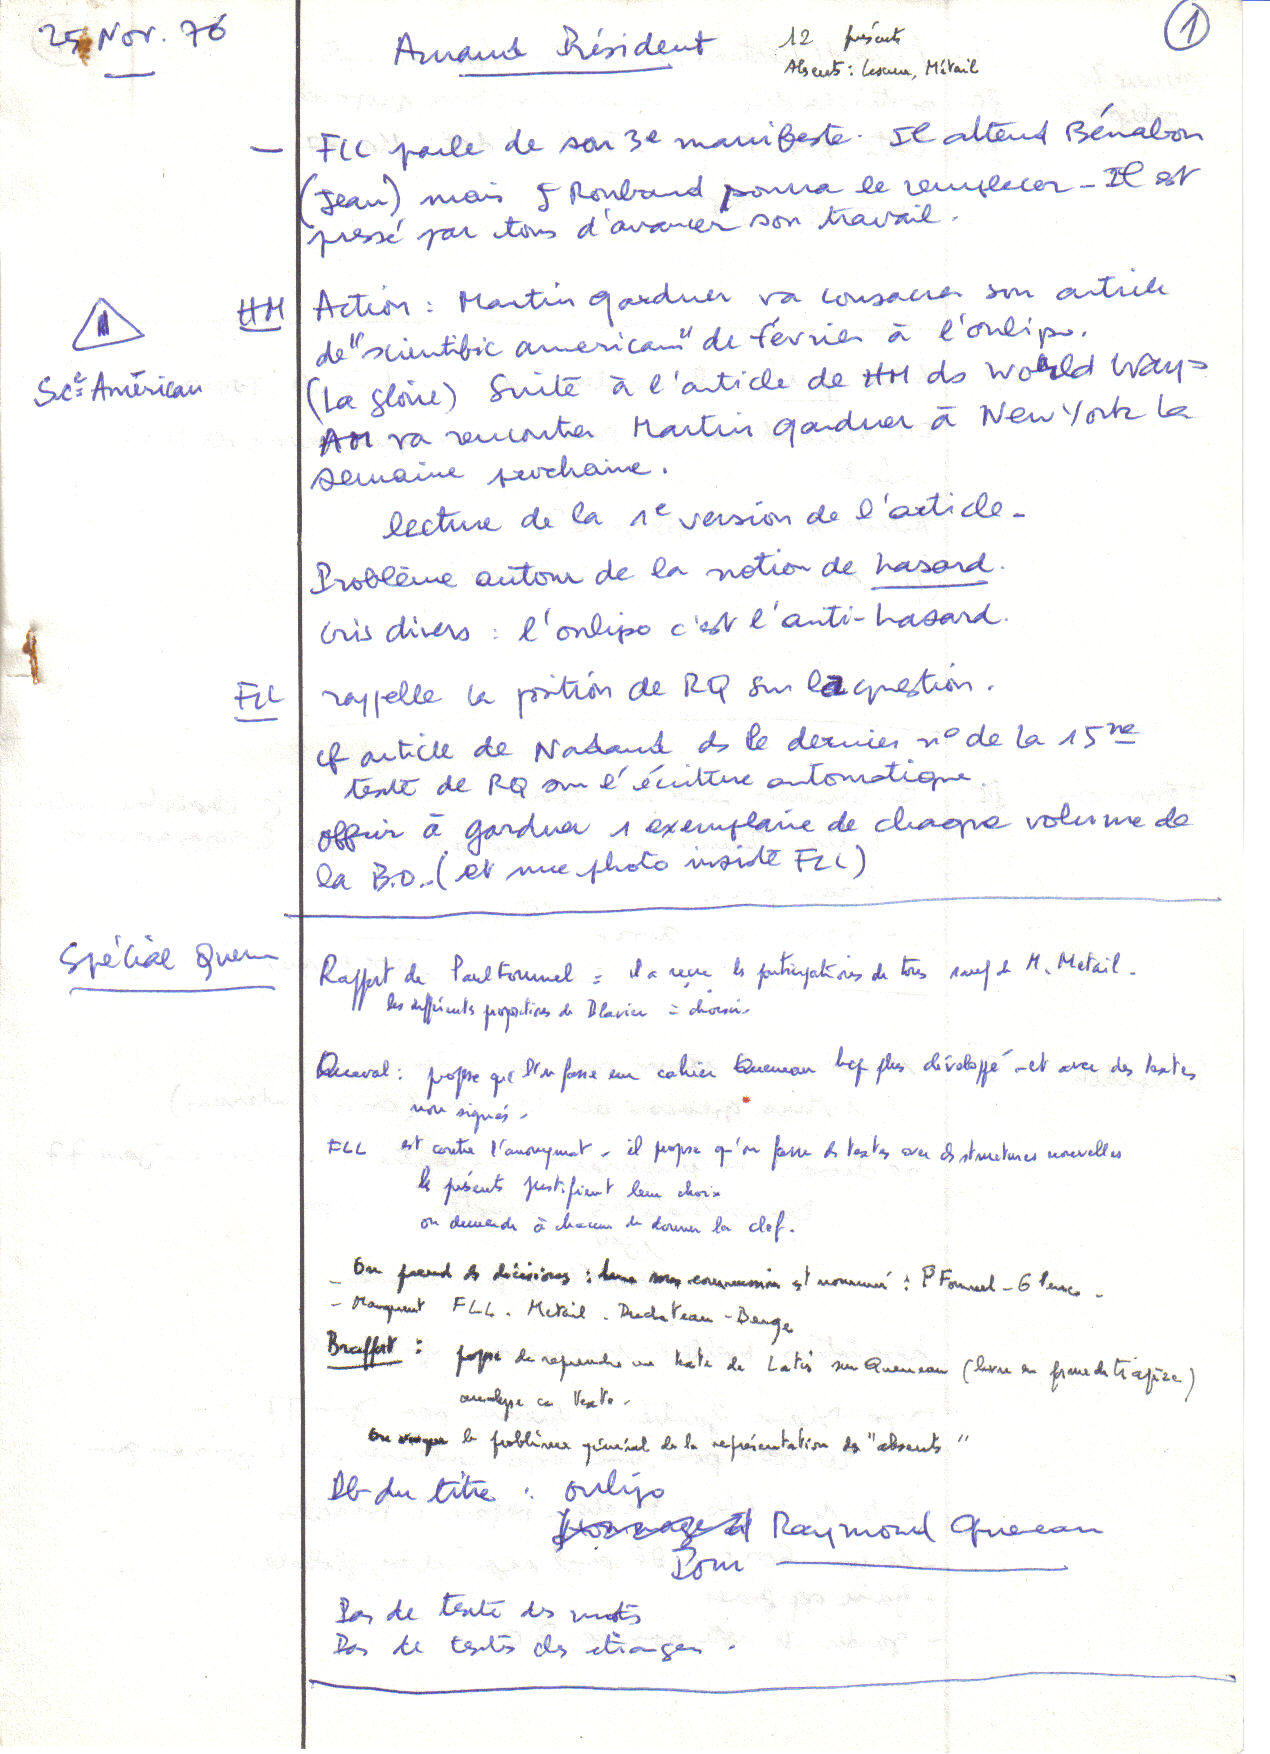 25 Nov. 76
Arnaud Président
12 présents
Absents : Lescure, Métail
1
— FLL parle de son 3e manifeste. Il attend Bénabou
(Jean) mais J Roubaud pourra le remplacer - Il est
pressé par tous d'avancer son travail.
HM Action : Martin Gardner va consacrer son article
de "scientific american" de février à l'oulipo.
Sc: Américan
(La gloire) Suite à l'article de HM ds World Ways
HM va rencontrer Martin Gardner à New York la
semaine prochaine.
lecture de la 1e version de l'article -
Problème autour de la notion de hasard.
Cris divers : l'oulipo c'est l'anti-hasard.
FLL rappelle la position de RQ sur la question.
cf article de Nadaud ds le dernier n° de la 15ne
texte de RQ sur l'écriture automatique.
offrir à Gardner 1 exemplaire de chaque volume de
la B.O.. (et une photo insiste FLL)
Spécial Queneau
Rapport de Paul Fournel = il a reçu les participations de tous sauf de M. Metail.
les différents propositions de Blavier = à choisir.
Queval : propose que l'on fasse un cahier Queneau bcp plus développé - et avec des textes
non signés.
FLL est contre l'anonymat. il propose qu'on fasse des textes avec des structures nouvelles
les présents justifient leur choix
on demande à chacun de donner la clef.
- On prend des décisions : une sous-commission est nommée : P Fournel - G Perec.
- Manquent FLL. Metail. Duchateau - Berge
Braffort : propose de reprendre un texte de Latis sur Queneau (livre en forme de trapèze)
analyse ce texte.
On évoque le problème général de la représentation des "absents"
Pb du titre : oulipo
Hommage à Raymond Queneau
Pour
Pas de texte des morts
Pas de textes des étrangers.